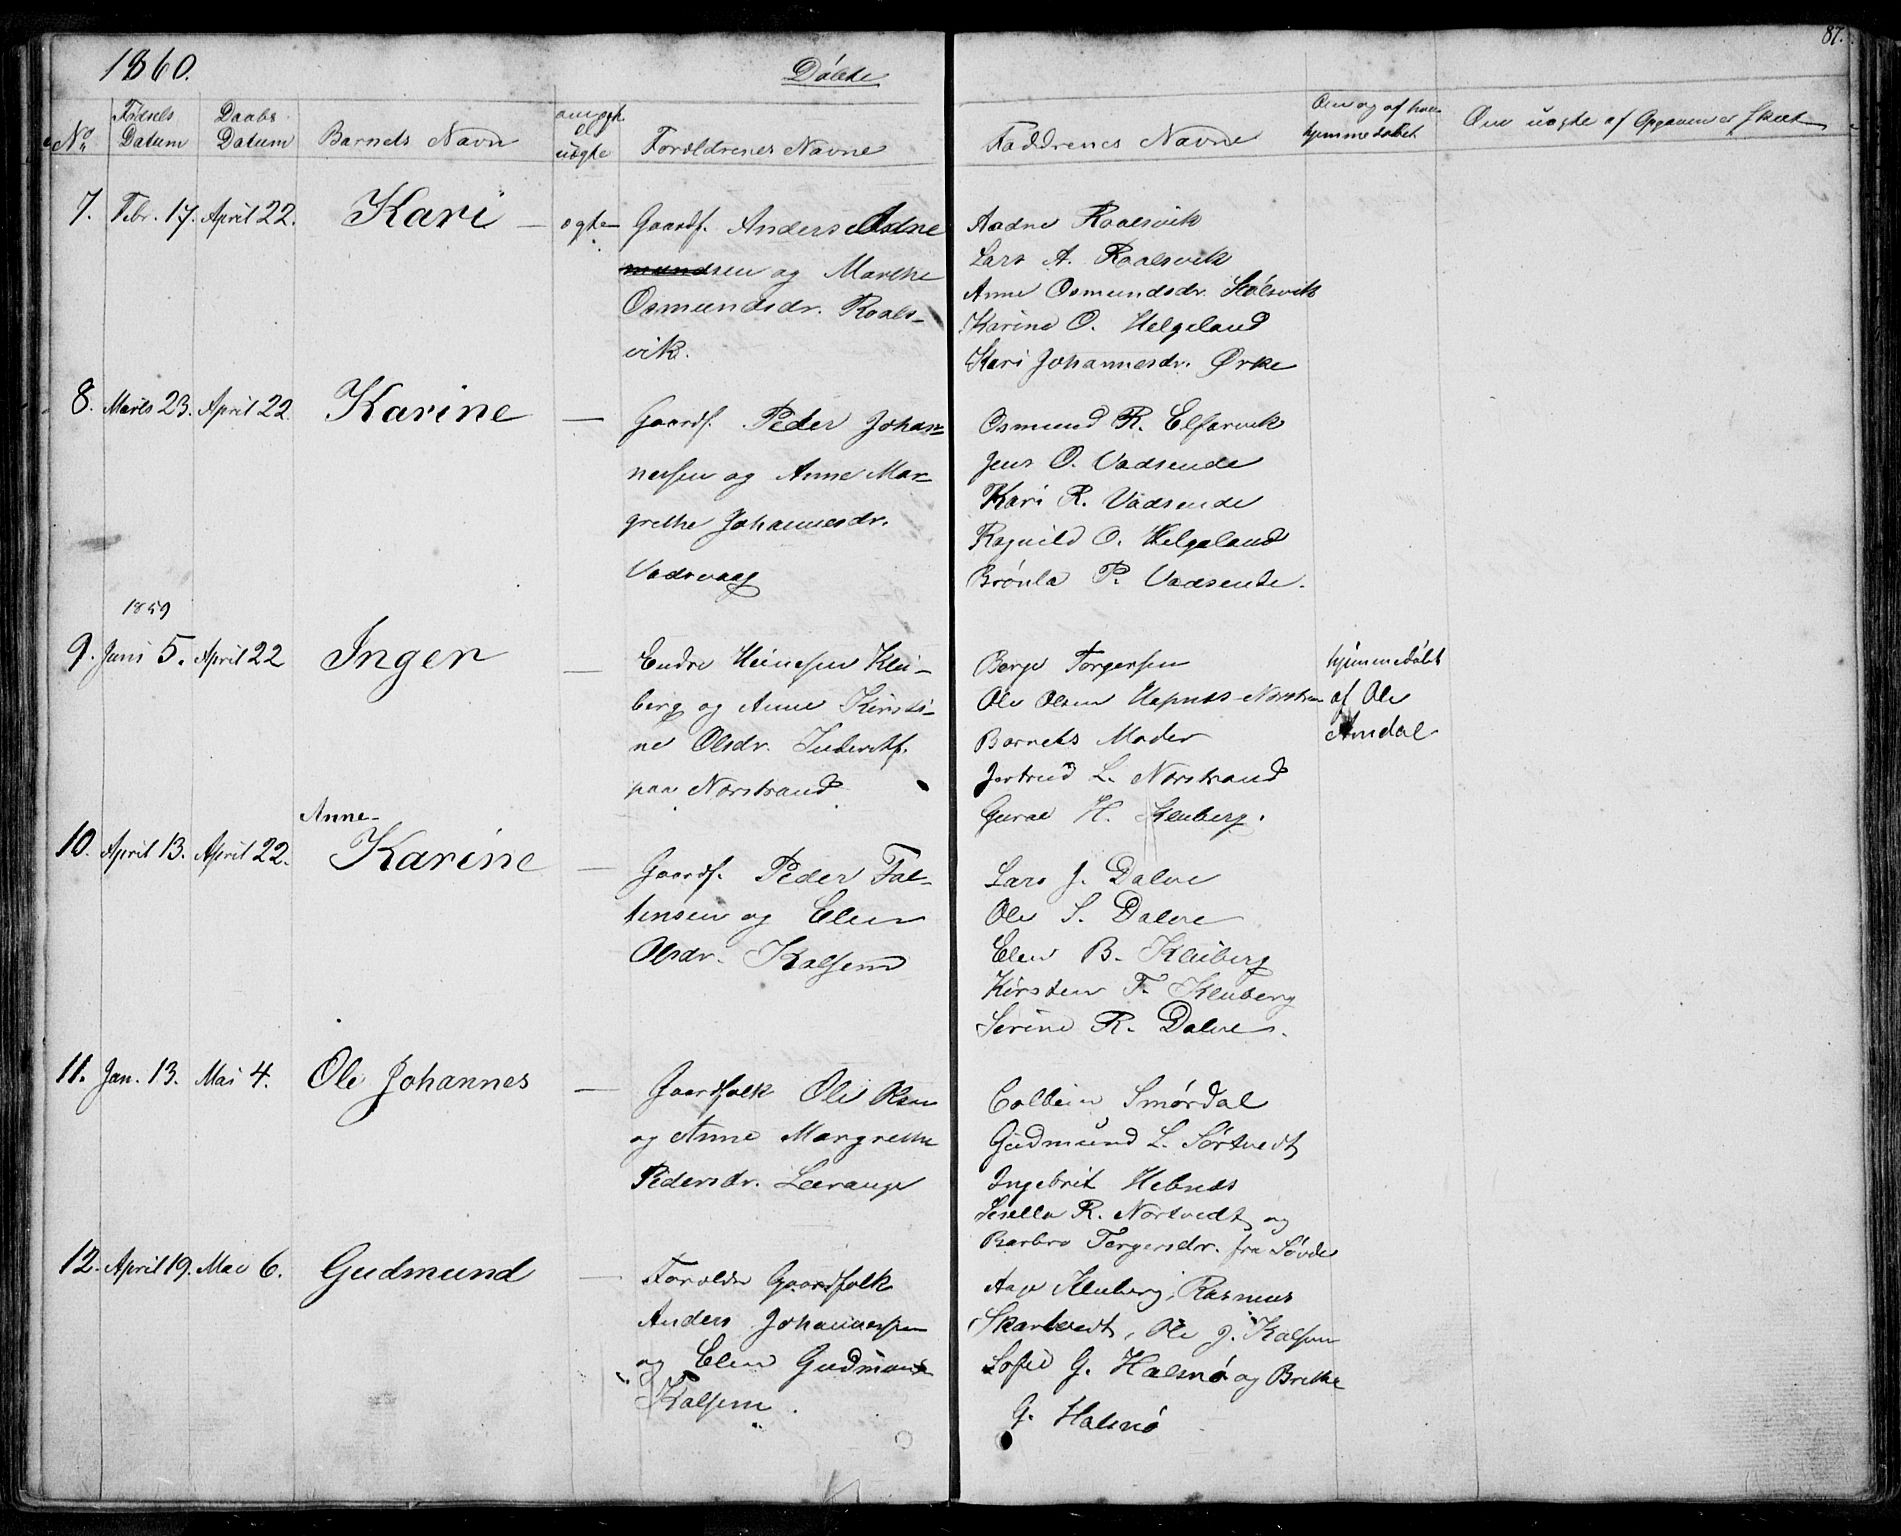 1860.
Døbte
87.
No
Fødsels Datum
Daabs Datum
Barnets Navn
om ægte el uægte
Forældrenes Navne
Faddrenes Navne
Om og af hvem hjemmedøbt
Om uægte af Opgaven er skeet
7. Febr. 17. April 22. Kari — ægte — Gaardf. Anders Adne
mundsen og Marthe
Osmundsdr. Roals-
vik.
Aadne Roalsvik
Lars A. Roalsvik
Anne Osmundsdr. Stølsvik
Karine O. Helgeland
Kari Johannesdr. Ørke
8. Marts 23. April 22 Karine — Gaardf. Peder Johan-
nessen og Anne Mar-
grethe Johannesdr.
Vadsvaag
Osmund R. Elfarvik
Jens O. Vadsende
Kari R. Vadsende
Ragnild O. Helgeland
Brønla P. Vadsende.
1859
9. Juni 5. April 22 Inger — Endre Heinesen Klei-
berg og Anne Kirsti-
ne Olsdr. Inderstf.
paa Norstrand
Børge Torgersen
Ole Olsen Hepnes Norstran
Barnets Moder
Jertrud L. Norstrand
Guroe H. Kleiberg.
hjemmedøbt
af Ole
Amdal
Anne-
10. April 13. April 22. Karine — Gaardf. Peder Fal-
tinsen og Elen
Olsdr. Kalsem
Lars J. Dalve
Ole S. Dalve
Elen B. Kleiberg
Kirsten F. Kleiberg
Serine R. Dalve.
11. Jan. 13. Mai 4. Ole Johannes — Gaardfolk Ole Ras
og Anne Margrethe
Pedersdr. Lærange
Colbein Smørdal
Gudmund L. Sørtvedt
Ingebrit Hebnes
Sesella R. Nortvedt og
Barbro Torgersdr. fra Søvde
12. April 19. Mai 6. Gudmund — Forældre Gaardfolk
Anders Johannessen
og Elen Gudmunds
Kalsem.
Aage Kleiberg, Rasmus
Skartvedt, Ole J. Kalsem
Sofie G. Halsnø og Brithe
G. Halsnø